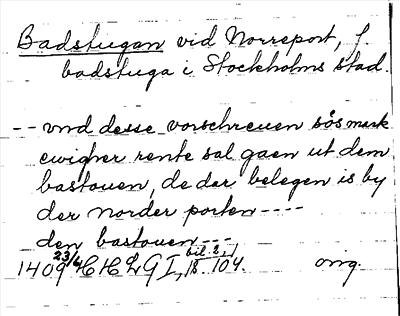 Badstugan vid Norreport, f.
badstuga i Stockholms stad.
-- vnd desse vorschreuen sôs mark
ewigher rente sal gaen ut dem
bastouen, de dar belegen is by
der norder porten ----
den bastouen ---
1409 23/6 HHLG I, bil. 2, 1 s. 104. orig.